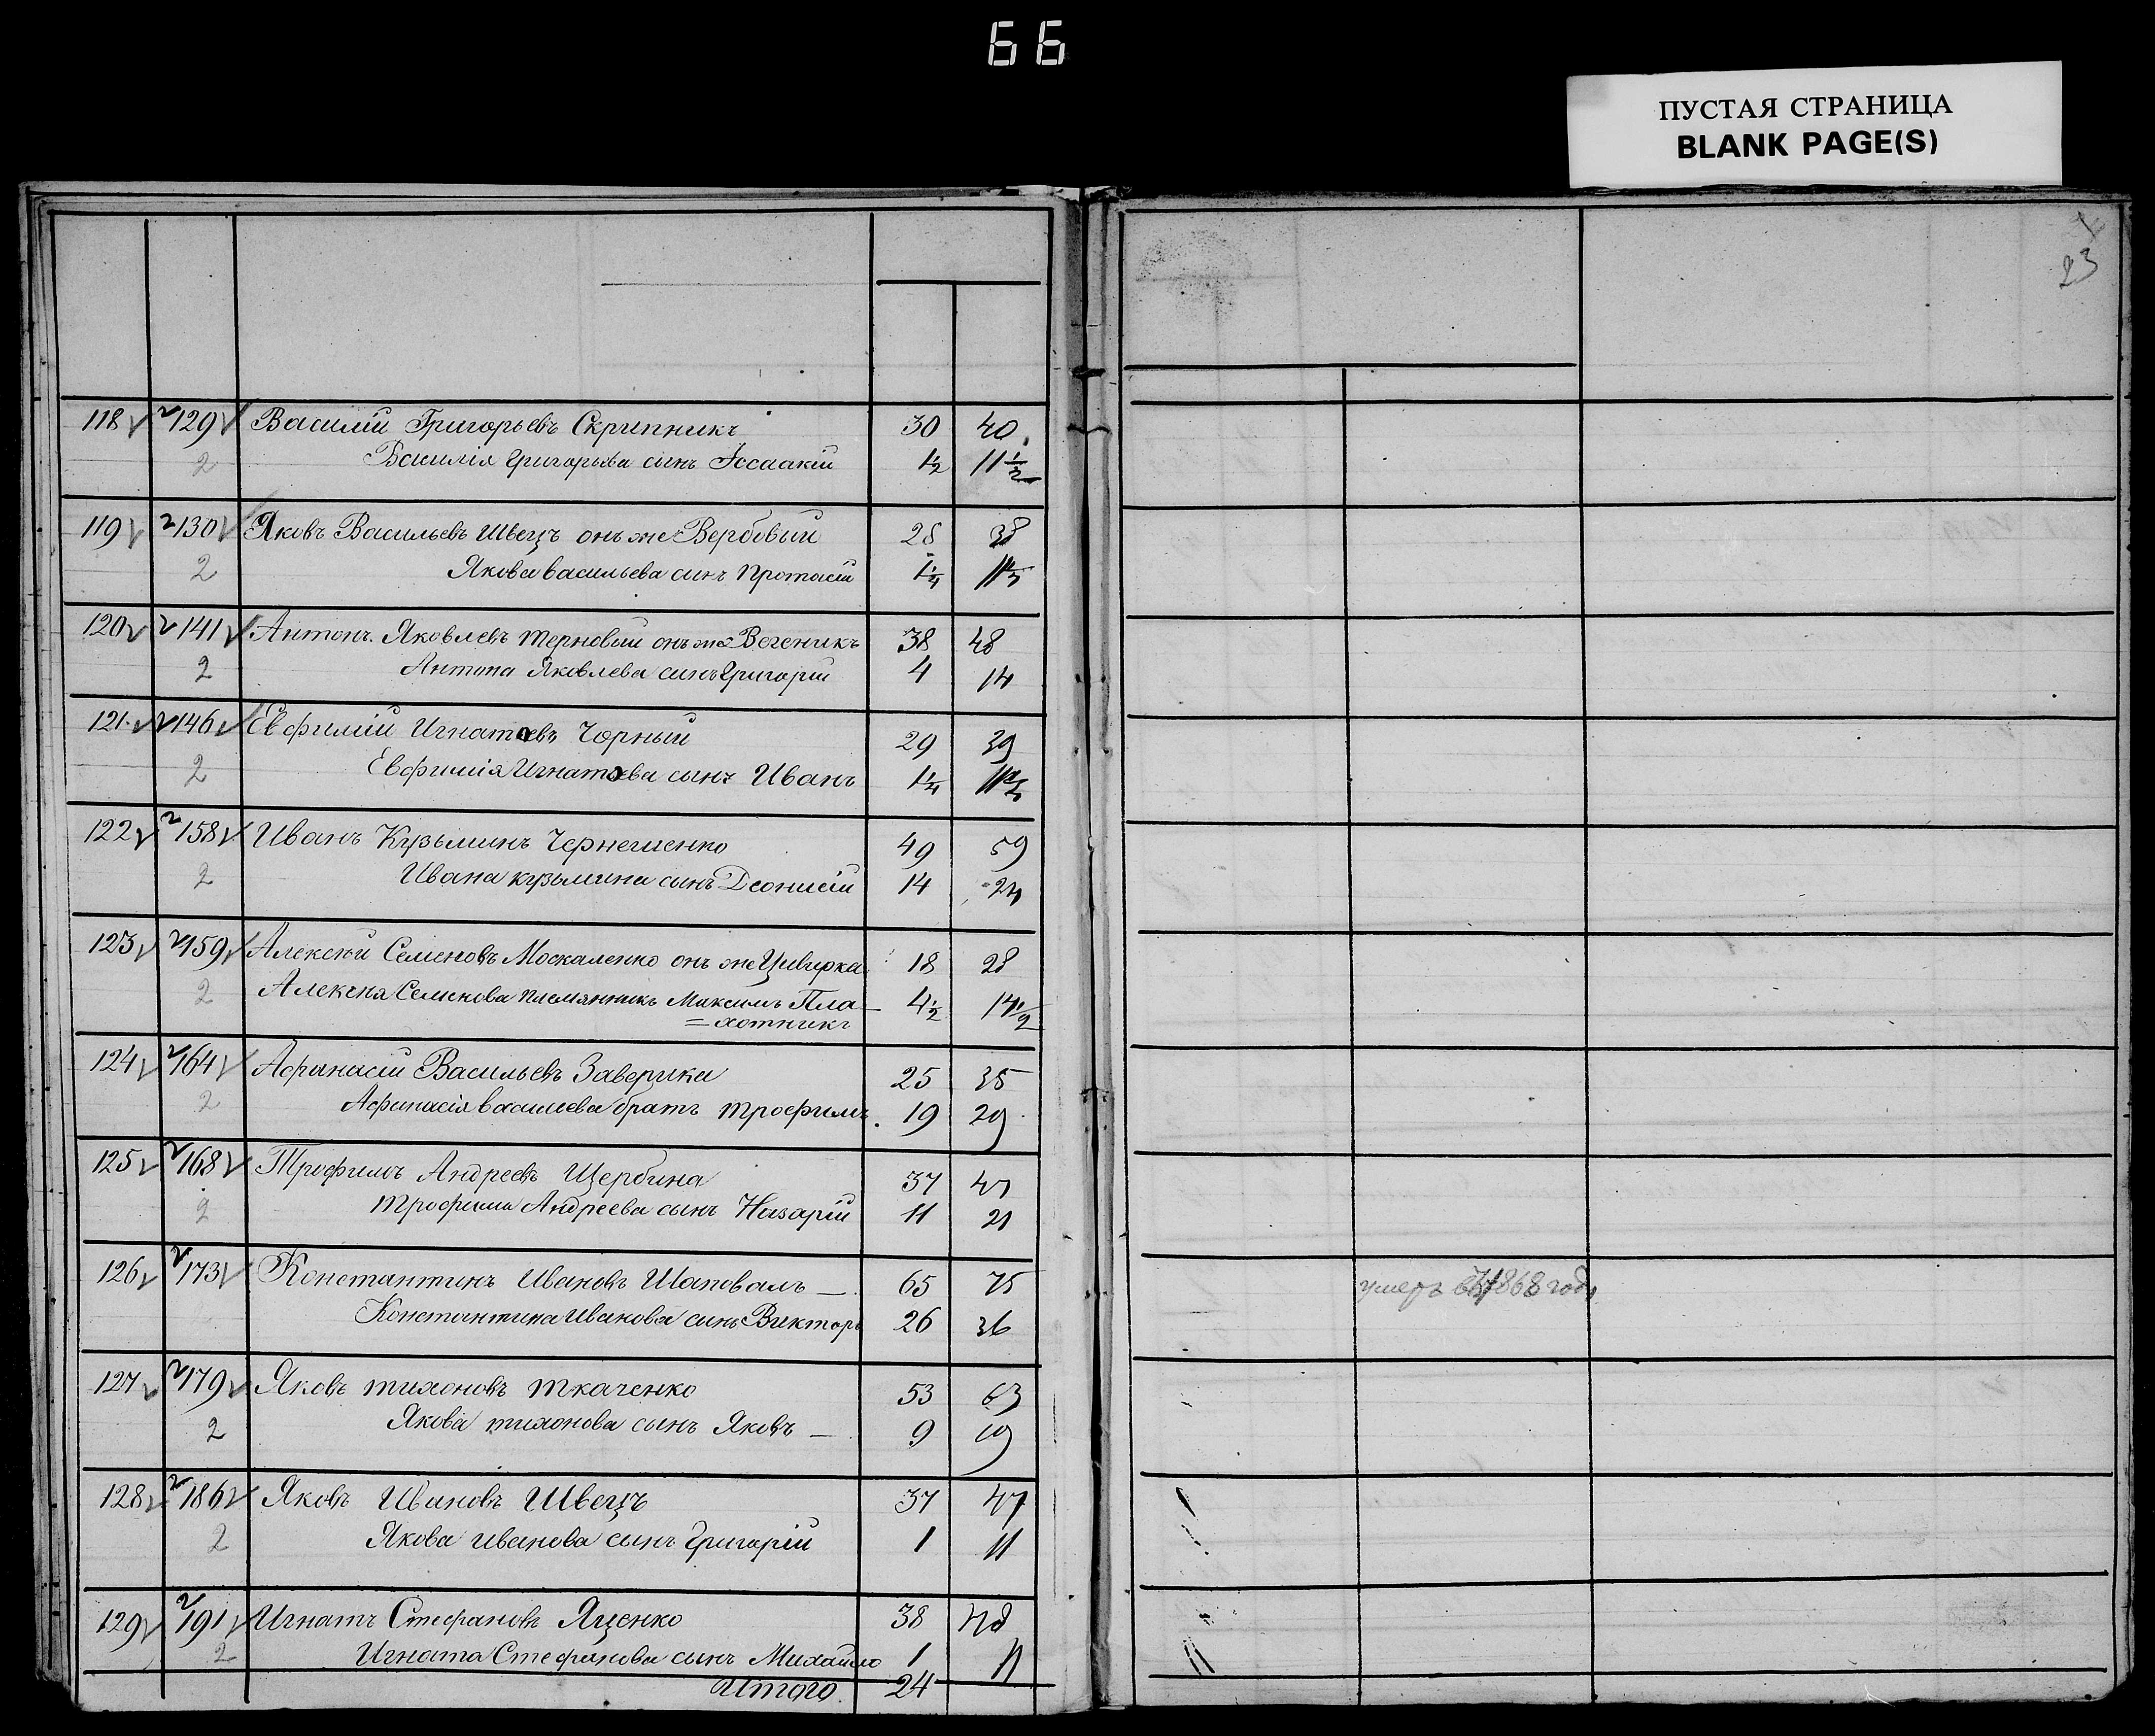 66
ПУСТАЯ СТРАНИЦА
BLANK PAGE(S)
23
118 2 129 Василій Григорьевъ Скрипникъ 30 40
2 Василія Григорьева сынъ Іссаакій 1 1/2 11 1/2
119 2 130 Яковъ Васильевъ Швецъ онъ же Вербовый 28 38
2 Якова Васильева сынъ Протасій 1 1/4 11 1/4
120 2 141 Антонъ Яковлевъ Терновый онъ же 38 48
2 Антона Яковлева сынъ Григорій 4 14
121 2 146 Евфимій Игнатовъ Чорный 29 39
2 Евфимія Игнатова сынъ Иванъ 1 1/4 11 1/4
122 2 158 Иванъ Кузьминъ Чернешенко 49 59
2 Ивана Кузьмина сынъ Деонисій 14 24
123 2 159 Алексѣй Семеновъ Москаленко онъ же Цивирка 18 28
2 Алексѣя Семенова племянникъ Максимъ Пла-
=хотникъ 4 1/2 14 1/2
124 2 164 Афанасій Васильевъ Заверика 25 35
2 Афанасія Василиева братъ Трофимъ 19 29
125 2 168 Трофимъ Андреевъ Щербина 37 47
2 Трофима Андреева сынъ Назарій 11 21
126 2 173 Константинъ Ивановъ Шаповалъ 65 75 умеръ въ 1868 годѣ
Константина Иванова сынъ Викторъ 26 36
127 2 179 Яковъ Тихоновъ Ткаченко 53 63
2 Якова Тихонова сынъ Яковъ 9 19
128 2 186 Яковъ Ивановъ Швецъ 37 47
2 Якова Иванова сынъ Григорій 1 11
129 2 191 Игнатъ Стефановъ Яценко 38 48
2 Игната Стефанова сынъ Михайло 1 11
Итого 24